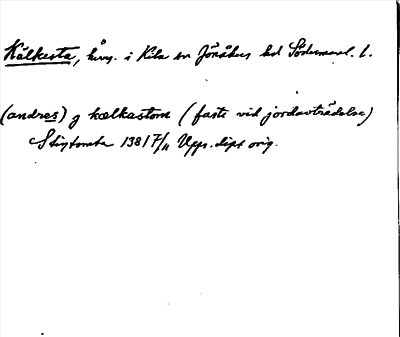 Kälkesta, hvg. i Kila sn Jönåkers hd Södermanl. l.
(andres) j kælkastom (faste vid jordavträdelse)
Stigtomta 1381 7/11 Upps. dipl orig.